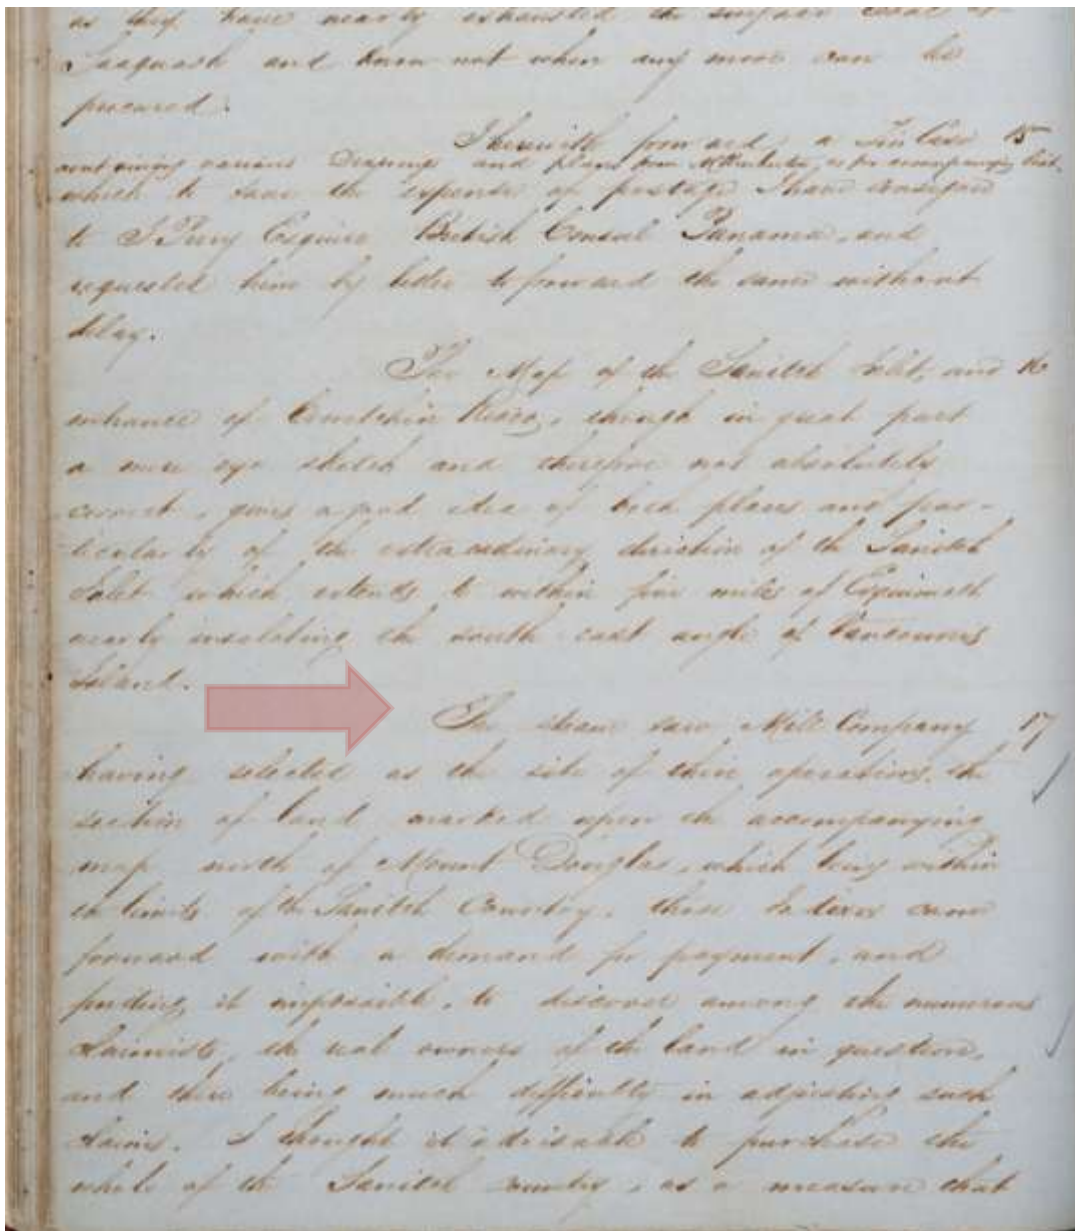 as they have nearly exhausted the surface coal at
Suquash and know not when any more can be
procured.
I herewith forward a Tin Case 15
containing various Drawings and plans from as per accompanying list,
which to save the expense of postage I have consigned
to Perry Esquire British Consul Panama, and
requested him by letter to forward the same without
delay.
The Map of the Sanitch Inlet, and 16
entrance of Cowitchin River, though in great part
a mere eye sketch and therefore not absolutely
correct, gives a good idea of both places and par-
ticularly of the extraordinary direction of the Sanitch
Inlet which extends to within five miles of Esquimalt
nearly insulating the south east angle of Vancouvers
Island.
The steam saw Mill Company 17
having selected as the site of their operations, the
section of land marked upon the accompanying
map north of Mount Douglas, which being within
the limits of the Sanitch Country, those Indians came
forward with a demand for payment, and
finding it impossible, to discover among the numerous
claimants, the real owners of the land in question,
and there being much difficulty in adjusting such
claims. I thought it advisable to purchase the
whole of the Sanitch country, as a measure that